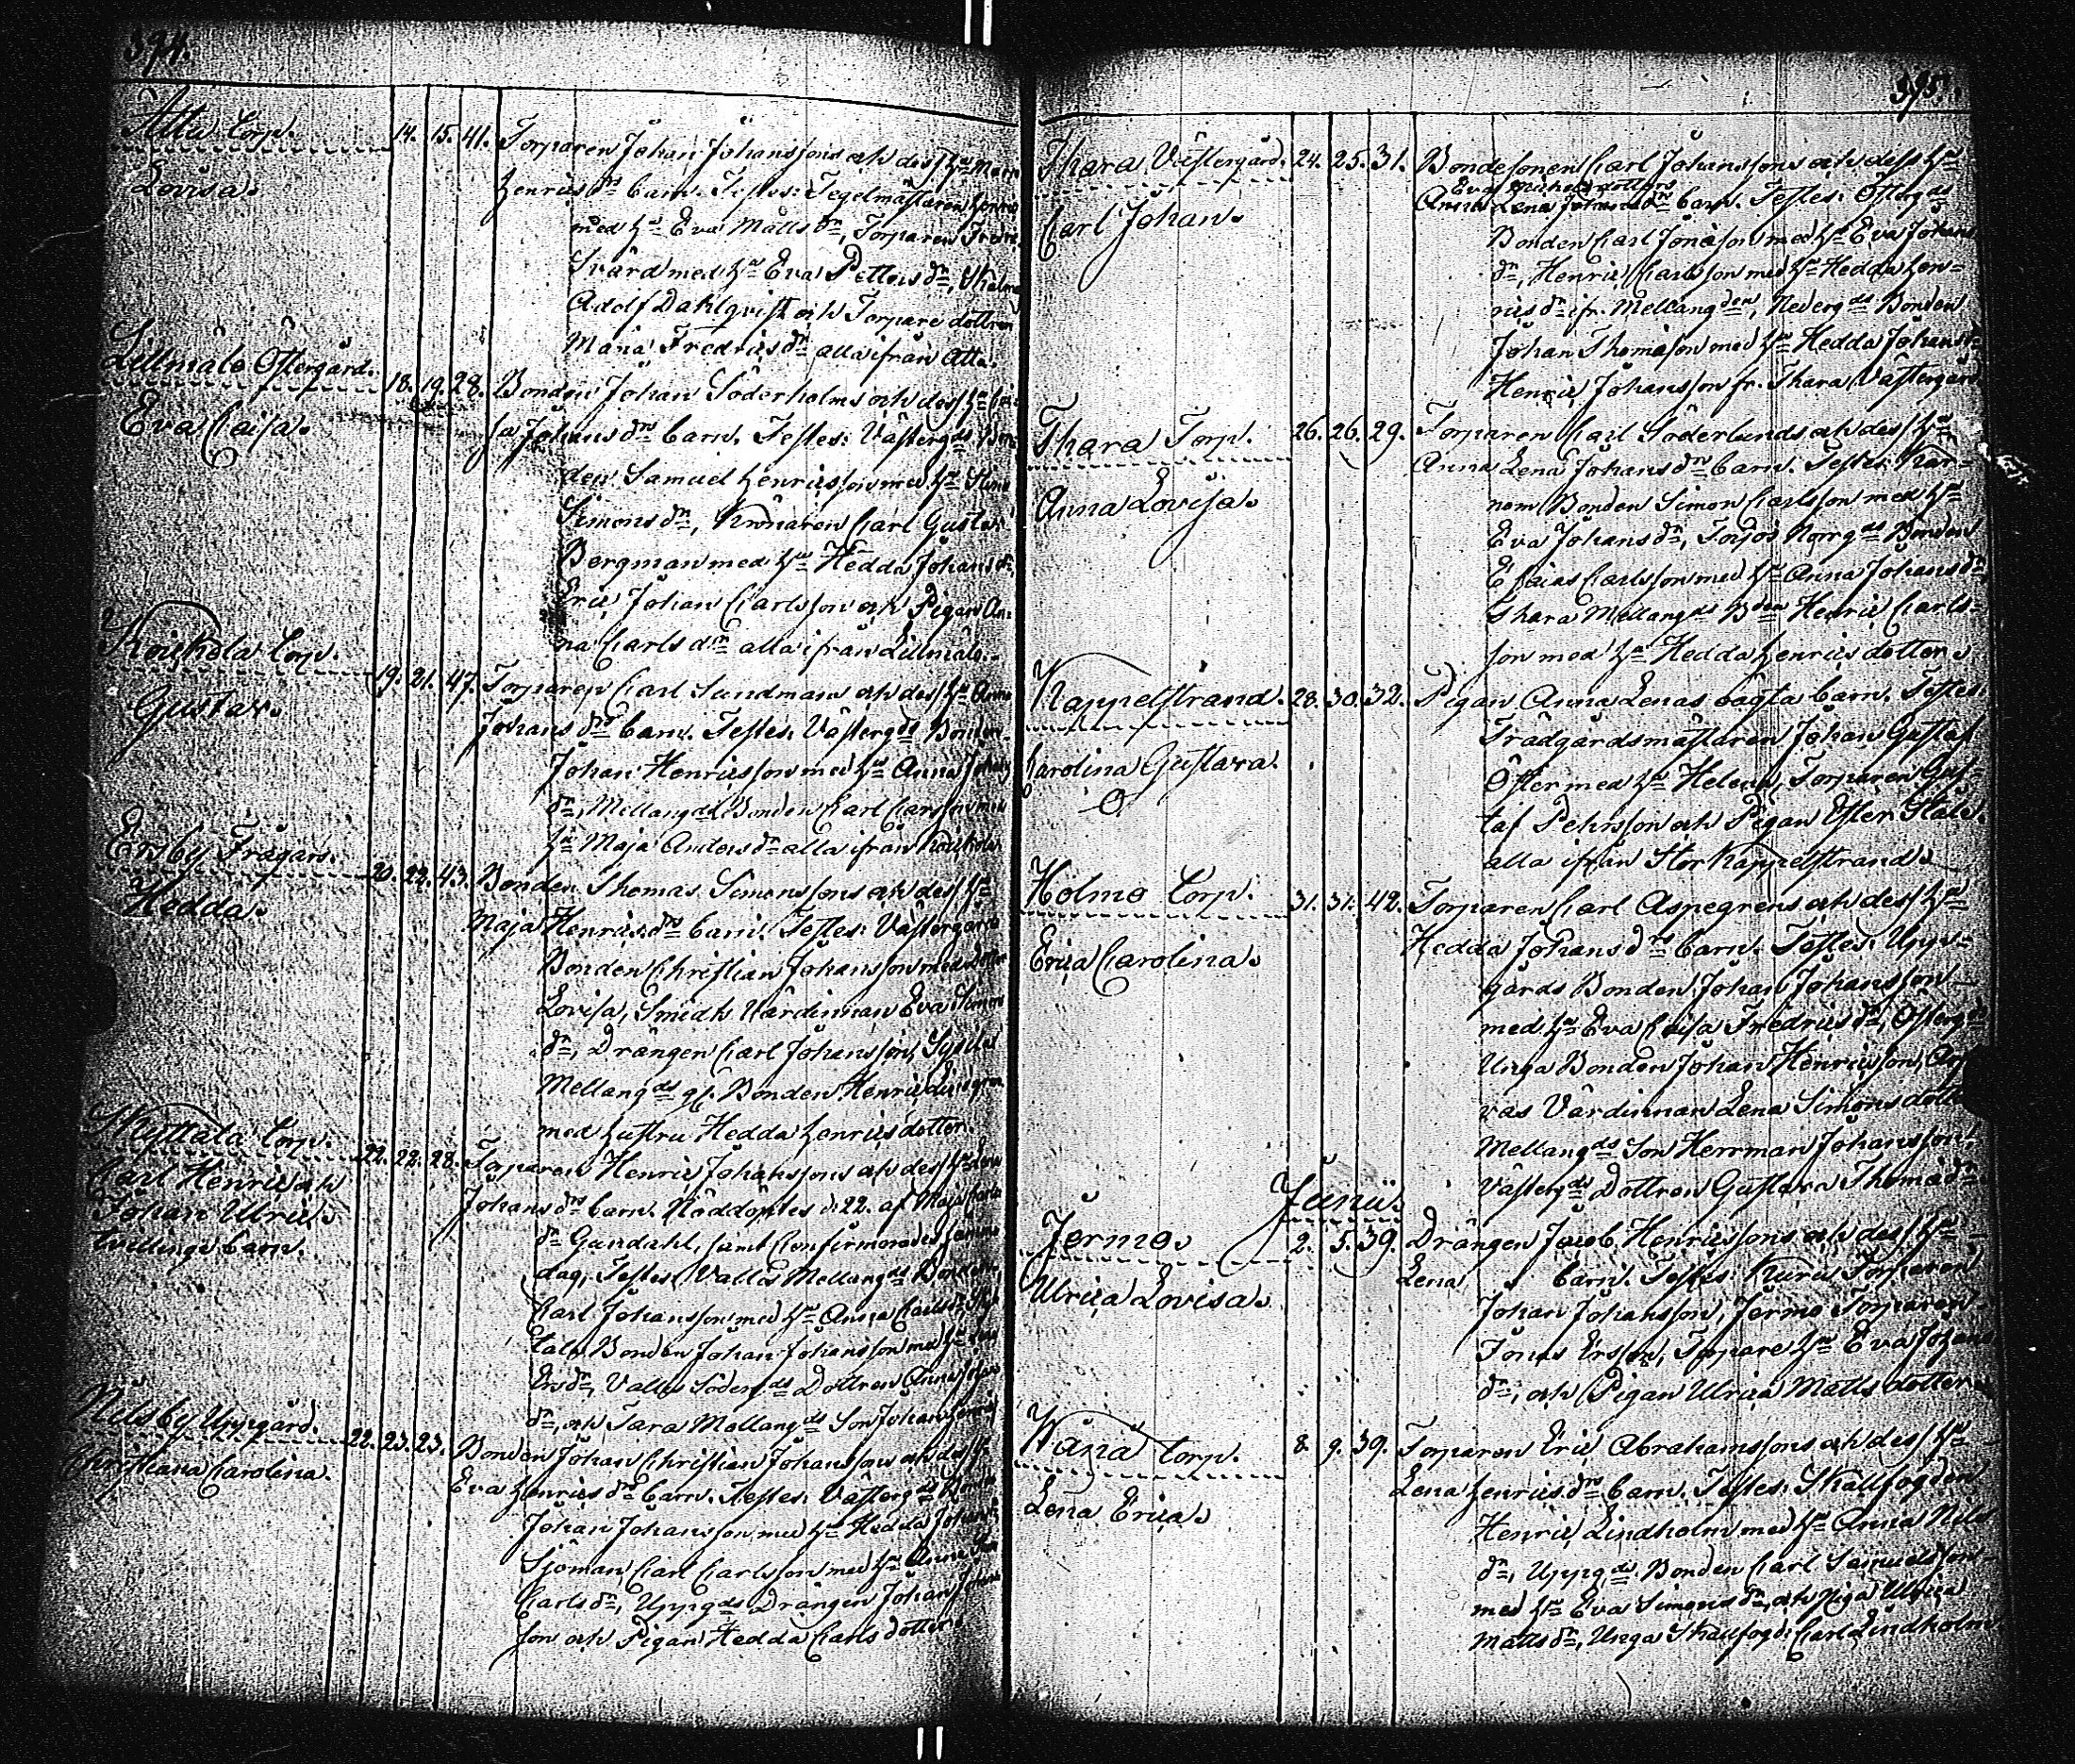 394.
Attu Torp. 14. 15. 41. Torparen Johan Johanssons och dess Hu Maria
Lovisa. Henricsdrs barn. Testes: Tegelmästaren Henric
med Hu Eva Mattsdr, Torparen Fredric
Svärd med Hu Eva Pettersdr, Skalm
Adolf Dahlqvist och Torpare dottren
Maria Fredricsdr alla ifrån Attu.
Lillmälo Östergård. 18. 19. 28. Bonden Johan Söderholms och dess Hu Cai-
Eva Caisa. sa Johansdrs barn. Testes: Västergds Bon-
den Samuel Henricsson med Hu Stina
Simonsdr, Kronaren Carl Gustav
Bergman med Hu Hedda Johansdr,
Eric Johan Carlsson och Pigan An-
na Carlsdr alla ifrån Lillmälo.
Koupola Torp. 19. 21. 47. Torparen Carl Sundmans och dess Hu Anna
Gustav. Johansdrs barn. Testes: Västergds Bonden
Johan Henricsson med Hu Anna Johans
dr, Mellangds Bonden Carl Carlsson med
Hu Maja Andersdr alla ifrån
Ersby Frägars. 20. 22. 43. Bonden Thomas Simonssons och dess Hu
Hedda. Maja Henricsdrs barn. Testes: Västergårds
Bonden Christian Johansson med dotter
Lovisa, Smids Värdinnan Eva Simons
dr, Drängen Carl Johansson,
Mellangds gl. Bonden Henric Lindgren
med hustru Hedda Henricsdotter.
Kyttäla Torp. 22. 22. 28. Torparen Henric Johanssons och dess Hu
Carl Henric och
Johan Ulric. Johansdrs barn. Nöddöptes d: 22. af Maja Carls
tvillinge barn. dr Gundahl, samt Confirmerades samma
dag, Testes Vallis Mellangds Bonden
Carl Johansson med Hu Anna Carlsdr,
Bonden Johan Johansson med Hu
Ersdr, Vallis Södergds Dottren Anna
dr, och Tara Mellangds Son Johan
Nilsby Uppgård. 22. 23. 23. Bonden Johan Christian Johanssons och dess H.
Christiana Carolina. Eva Henricsdrs barn. Testes: Västergds Bonden
Johan Johansson med Hu Hedda Johansdr,
Sjöman Carl Carlsson med Hu Anna
Carlsdr, Uppgds Drängen Johan
son och Pigan Hedda Carls dotter.
395.
Thara Västergård. 24. 25. 31. Bondesonen Carl Johanssons och dess Hu
Eva Michelsdotters
Carl Johan. Anna Lena Johansdrs barn. Testes: Östergds
Bonden Carl Jonasson med Hu Eva Johans
dr, Henric Carlsson med Hu Hedda Hen-
ricsdr ifr. Mellangden, Nedergds Bonden
Johan Thomasson med Hu Hedda Johansdr
Henric Johansson fr. Thara Västergård
Thara Torp. 26. 26. 29. Torparen Carl Söderlunds och dess Hu
Anna Lovisa. Anna Lena Johansdrs barn. Testes: Kär-
nom Bonden Simon Carlsson med Hu
Eva Johansdr, Torjos Norrgds Bonden
Esaias Carlsson med Hu Anna Johansdr
Thara Mellangds Bden Henric Carls-
son med Hu Hedda Henricsdotter.
Kappelstrand. 28. 30. 32. Pigan Anna Lenas oägta barn. Testes
Carolina Gustava. Trädgårdsmästaren Johan Gustaf
Öster med Hu Helena, Torparen Gus-
taf Pehrsson och Pigan Ester Ståls.
alla ifrån Stor Kappelstrand.
Holmo Torp. 31. 31. 42. Torparen Carl Aspegrens och dess Hu
Erica Carolina. Hedda Johansdrs barn. Testes: Upp-
gårds Bonden Johan Johansson
med Hu Eva Caisa Fredricsdr, Östergds
Unga Bonden Johan Henricsson, Ar
vas Värdinnan Lena Simonsdotter
Mellangds Son Herrman Johansson,
Västergds Dottren Gustava Thomædr.
Junii.
Jermo. 2. 5. 39. Drängen Jacob Henricssons och dess Hu
Ulrica Lovisa. Lena barn. Testes: Kuru Torparen
Johan Johansson, Jermo Torparen
Jonas Ersson, Torpare Hu Eva Johans
dr, och Pigan Ulrica Mattsdotter.
Wänå Torp. 8. 9. 39. Torparen Eric Abrahamssons och dess Hu
Lena Erica. Lena Henricsdrs barn. Testes: Skallfogden
Henric Lindholm med Hu Anna Nils
dr, Uppgds Bonden Carl Samuelsson
med Hu Eva Simonsdr, och Piga Ulrica
Mattsdr, Unga Skallfogd: Carl Lindholm